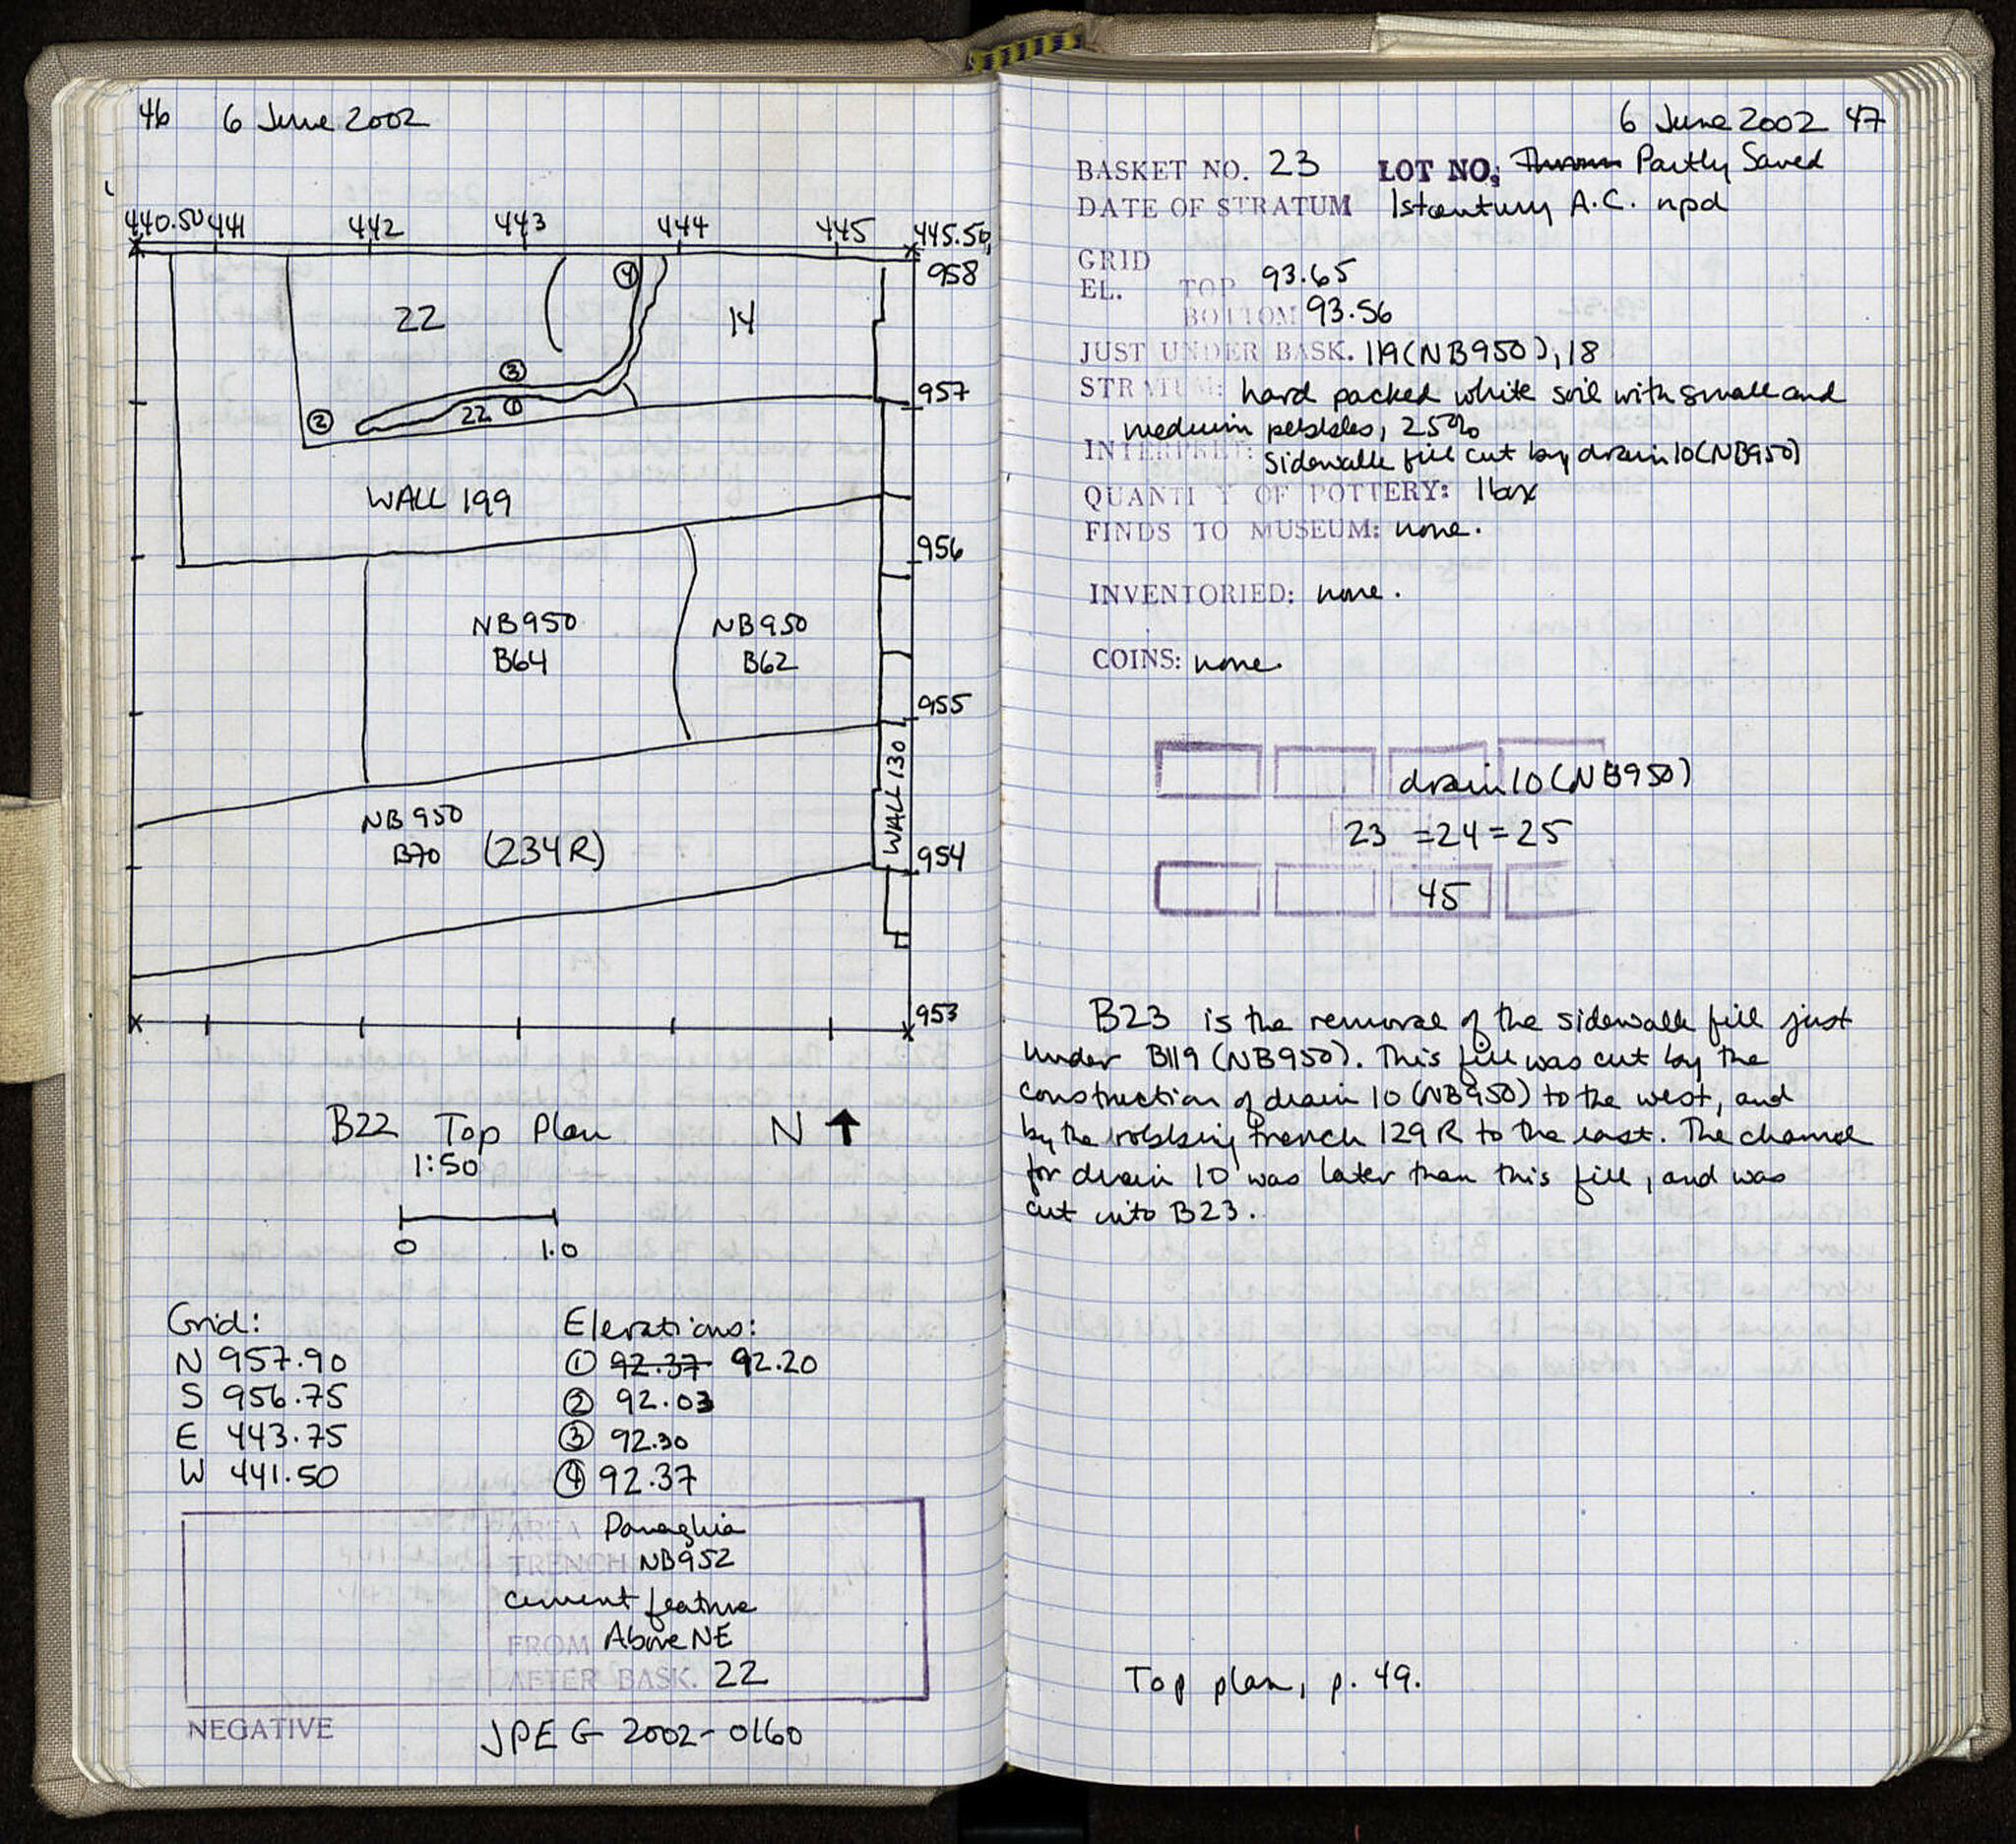 46 6 June 2002
440.50 441 442 443 444 445 445.50,
958
④
22
14
③
957
22 ①
②
WALL 199
956
NB950
B64
NB950
B62
955
WALL 130
NB 950
B70 (234R)
954
953
B22 Top Plan N
1:50
0 1.0
Grid:
N 957.90
S 956.75
E 443.75
W 441.50
Elevations:
① 92.37 92.20
② 92.03
③ 92.30
④ 92.37
AREA Panaghia
TRENCH NB952
cement feature
FROM Above NE
AFTER BASK. 22
NEGATIVE JPEG 2002-0160
6 June 2002 47
BASKET NO. 23 LOT NO. Thrown Partly Saved
DATE OF STRATUM 1st century A.C. npd
GRID
EL. TOP 93.65
BOTTOM 93.56
JUST UNDER BASK. 119 (NB950), 18
STRATUM: hard packed white soil with small and
medium pebbles, 25%
INTERPRET: Sidewalk fill cut by drain 10 (NB950)
QUANTITY OF POTTERY: 1 box
FINDS TO MUSEUM: none.
INVENTORIED: none.
COINS: none.
drain 10 (NB950)
23 =24=25
45
B23 is the removal of the sidewalk fill just
under B119 (NB950). This fill was cut by the
construction of drain 10 (NB950) to the west, and
by the robbing trench 129R to the east. The channel
for drain 10 was later than this fill, and was
cut into B23.
Top plan, p. 49.